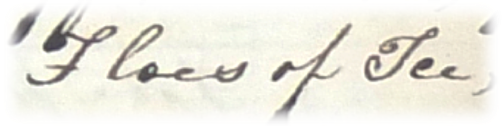 Floes of Ice,